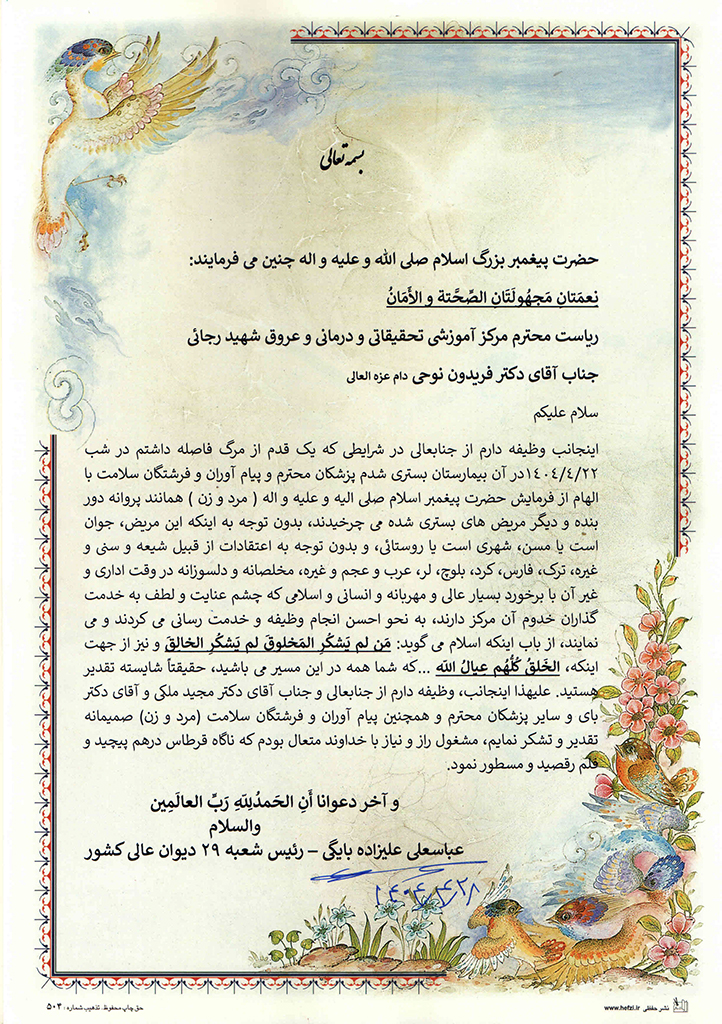 بسمه تعالی
حضرت پیغمبر بزرگ اسلام صلی الله و علیه و اله چنین می فرمایند:
نعمَتانِ مَجهُولَتَانِ الصِّحَّتة و الأمَانُ
ریاست محترم مرکز آموزشی تحقیقاتی و درمانی و عروق شهید رجائی
جناب آقای دکتر فریدون نوحی دام عزه العالی
سلام علیکم
اینجانب وظیفه دارم از جنابعالی در شرایطی که یک قدم از مرگ فاصله داشتم در شب
۱۴۰۴/۴/۲۲در آن بیمارستان بستری شدم پزشکان محترم و پیام آوران و فرشتگان سلامت با
الهام از فرمایش حضرت پیغمبر اسلام صلی الیه و علیه و اله ( مرد و زن ) همانند پروانه دور
بنده و دیگر مریض های بستری شده می چرخیدند، بدون توجه به اینکه این مریض، جوان
است یا مسن، شهری است یا روستائی، و بدون توجه به اعتقادات از قبیل شیعه و سنی و
غیره، ترک، فارس، کرد، بلوچ، لر، عرب و عجم و غیره، مخلصانه و دلسوزانه در وقت اداری و
غیر آن با برخورد بسیار عالی و مهربانه و انسانی و اسلامی که چشم عنایت و لطف به خدمت
گذاران خدوم آن مرکز دارند، به نحو احسن انجام وظیفه و خدمت رسانی می کردند و می
نمایند، از باب اینکه اسلام می گوید: مَن لم یَشکُرِ المَخلوقَ لم یَشکُرِ الخالِقَ و نیز از جهت
اینکه، الخَلقُ کُلُّهُم عِیالُ الله ...که شما همه در این مسیر می باشید، حقیقتاً شایسته تقدیر
هستید. علیهذا اینجانب، وظیفه دارم از جنابعالی و جناب آقای دکتر مجید ملکی و آقای دکتر
بای و سایر پزشکان محترم و همچنین پیام آوران و فرشتگان سلامت (مرد و زن) صمیمانه
تقدیر و تشکر نمایم، مشغول راز و نیاز با خداوند متعال بودم که ناگاه قرطاس درهم پیچید و
قلم رقصید و مسطور نمود.
و آخر دعوانا أَنِ الحَمدُلِلهِ رَبِّ العالَمِین
والسلام
عباسعلی علیزاده بایگی – رئیس شعبه ۲۹ دیوان عالی کشور
۱۴۰۴/۴/۲۸
نشر حفظی www.hefzi.ir
حق چاپ محفوظ. تذهیب شماره: ۵۰۳